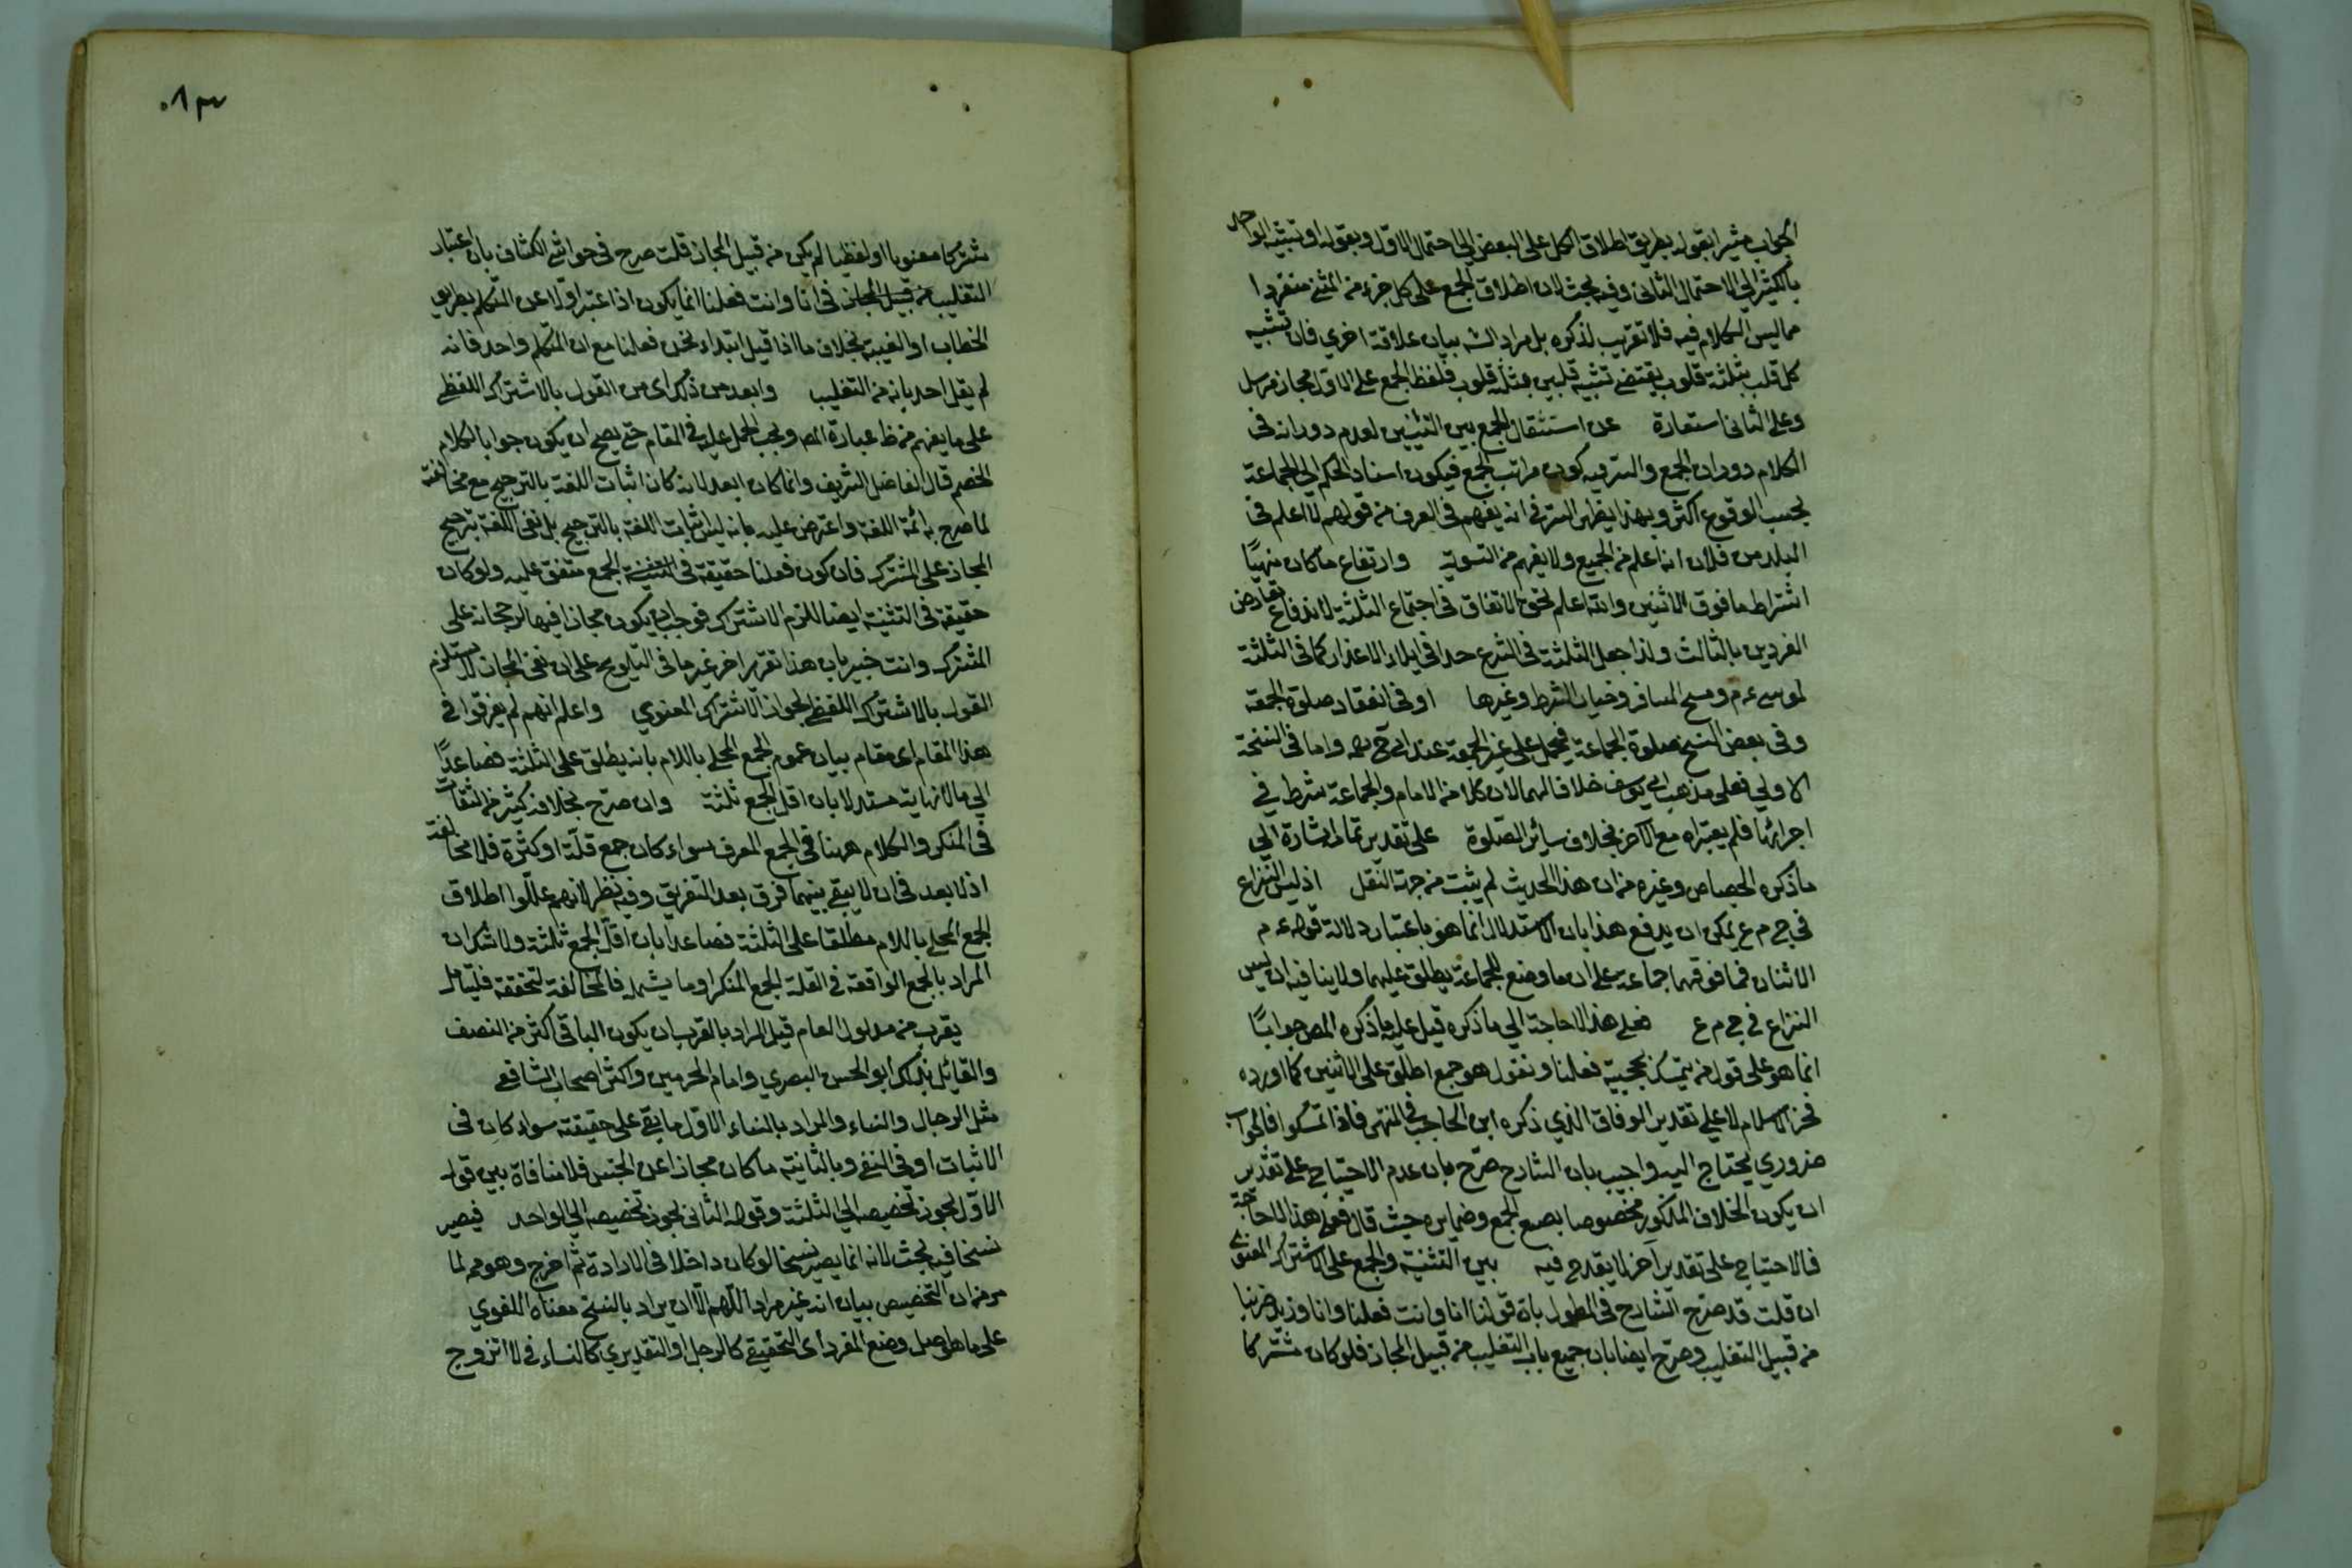 الجواب مشيرا بقوله بطريق اطلاق الكل على البعض الى احتمال الاول وبقوله او تشبيه الواحد
بالكثير الى الاحتمال الثاني وفيه بحث لان اطلاق الجمع على كل جزء من المثنى منفردا
مما ليس الكلام فيه فلا تقريب لذكره بل مراد الشه بيان علاقة اخرى فان تشبيه
كل قلب بثلثة قلوب يقتضي تشبيه قلبين بستة قلوب فلفظ الجمع على الاول مجاز مرسل
وعلى الثاني استعارة عن استثقال الجمع بين التثنيتين لعدم دورانه في
الكلام دوران الجمع والسر فيه كون مراتب الجمع فيكون اسناد الحكم الى الجماعة
بحسب الوقوع اكثر وبهذا يظهر السر في انه يفهم في العرف من قولهم لا اعلم في
البلد من فلان انه اعلم من الجميع ولا يفهم منه التسوية وارتفاع ما كان منهيًا
اشتراط ما فوق الاثنين والله اعلم لتحقق الاتفاق في اجتماع الثلثة لاندفاع تعارض
الفردين بالثالث ولذا جعل الثلثة في الشرع حدا في ابلاء الاعذار كما في الثلثة
لموسى ع م ومسح المسافر وخيار الشرط وغيرها او في انعقاد صلوة الجمعة
وفي بعض النسخ صلوة الجماعة فيحمل على غير الجمعة عند ابي ح رحمه واما في النسخة
الاولى فعلى مذهب ابي يوسف خلافا لهما لان كلا من الامام والجماعة شرط في
اجرائها فلم يعتبراه مع الاخر بخلاف سائر الصلوة على تقدير تمام اشارة الى
ما ذكره الجصاص وغيره من ان هذا الحديث لم يثبت من جهة النقل اذ ليس النزاع
في ج م ع يمكن ان يدفع هذا بان الاستدلال انما هو باعتبار دلالة قوله ع م
الاثنان فما فوقهما جماعة على ان ما وضع للجماعة يطلق عليهما ولا ينافيه ان ليس
النزاع في ج م ع فعلى هذا لا حاجة الى ما ذكره قيل عليه ما ذكره المص جوابًا
انما هو على قول من يتمسك بحجية فعلنا ونقول هو جمع اطلق على الاثنين كما اورده
فخر الاسلام لا على تقدير الوفاق الذي ذكره ابن الحاجب في المنتهى فاذا تمسكوا فالجواب
ضروري يحتاج اليه واجيب بان الشارح صرّح بان عدم الاحتياج على تقدير
ان يكون الخلاف المذكور مخصوصا بصيغ الجمع وضمايره حيث قال فعلى هذا لا حاجة
فالاحتياج على تقدير آخر لا يقدح فيه بين التثنية والجمع على الاشتراك المعنوي
ان قلت قد صرّح الشارح في المطول بان قولنا انا وانت فعلنا وانا وزيد ضربنا
من قبيل التغليب وصرّح ايضا بان جميع باب التغليب من قبيل المجاز فلو كان مشتركا
٠٨٣
مشتركا معنويا او لفظيا لم يكن من قبيل المجاز قلت صرح في حواشي الكشاف بان اعتبار
التغليب من قبيل المجاز في انا وانت فعلنا انما يكون اذا عبر اولا عن المتكلم بطريق
الخطاب او الغيبة بخلاف ما اذا قيل ابتداء نحن فعلنا مع ان المتكلم واحد فانه
لم يقل احد بانه من التغليب وابعد من ذلك اي من القول بالاشتراك اللفظي
على ما يفهم من ظ عبارة المص ويجب الحمل عليه في المقام حتى يصح ان يكون جوابا لكلام
الخصم قال الفاضل الشريف وانما كان ابعد لانه كان اثبات اللغة بالترجيح مع مخالفته
لما صرح به ائمة اللغة واعترض عليه بانه ليس اثبات اللغة بالترجيح بل نفي اللغة بترجيح
المجاز على المشترك فان كون فعلنا حقيقة في الجمع متفق عليه ولو كان
حقيقة في التثنية ايضا للزم الاشتراك فوجب ان يكون مجازا فيها لرجحانه على
المشترك وانت خبير بان هذا تقرير اخر غير ما في التلويح على ان نفي المجاز لا يستلزم
القول بالاشتراك اللفظي لجواز الاشتراك المعنوي واعلم انهم لم يفرقوا في
هذا المقام اي مقام بيان عموم الجمع المحلى باللام بانه يطلق على الثلثة فصاعدًا
الى ما لا نهاية مستدلا بان اقل الجمع ثلثة وان صرّح بخلافه كثير من الثقات
في المنكر والكلام ههنا في الجمع المعرف سواء كان جمع قلّة او كثرة فلا مخالفة
اذ لا بعد في ان لا يبقى بينهما فرق بعد التعريف وفيه نظر لانهم علّلوا اطلاق
الجمع المحلى باللام مطلقا على الثلثة فصاعدا بان اقل الجمع ثلثة ولا شك ان
المراد بالجمع الواقعة في العلة الجمع المنكر او ما يشمله فالمخالفة لمتحققة فليتأمل
يقرب من مدلول العام قيل المراد بالقرب ان يكون الباقي اكثر من النصف
والقائل بذلك ابو الحسن البصري وامام الحرمين واكثر اصحاب الشافعي
مثل الرجال والنساء والمراد بالنساء الاول ما بقي على حقيقته سواء كان في
الاثبات او في النفي وبالثانية ما كان مجازا عن الجنس فلا منافاة بين قوله
الاول يجوز تخصيصه الى الثلثة وقوله الثاني يجوز تخصيصه الى الواحد فيصير
نسخا فيه بحث لانه انما يصير نسخا لو كان داخلا في الارادة ثم اخرج وهو مم لما
مر من ان التخصيص بيان انه غير مراد اللّهم الّا ان يراد بالنسخ معناه اللغوي
على ما هو اصل وضع المفرد اي التحقيقي كالرجل او التقديري كالنساء في لا اتزوج